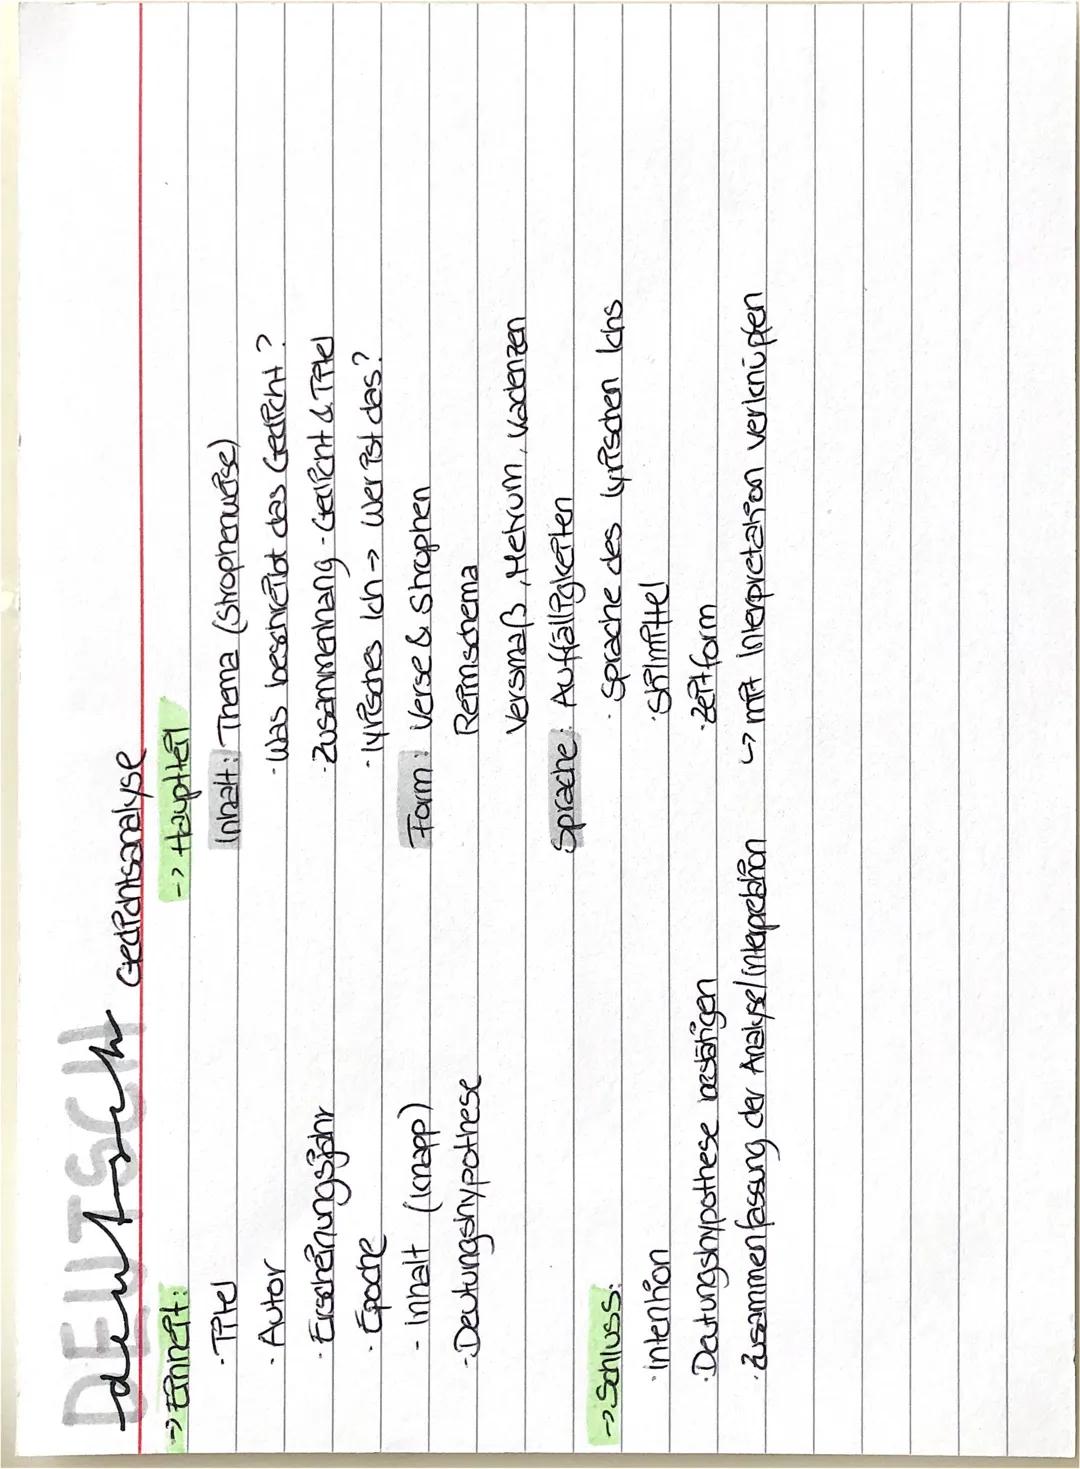 DEUTSCH
deutsch
Gedichtsanalyse
-> Einleit:
· Titel
· Autor
· Erscheinungsjahr
· Epoche
- Inhalt (knapp)
- Deutungshypothese
-> Schluss:
· intention
· Deutungshypothese bestätigen
· Zusammenfassung der Analyse/interpretation
-> Hauptteil
Inhalt: Thema (Strophenweise)
· Was beschreibt das Gedicht?
· Zusammenhang - Gedicht & Titel
· lyrisches Ich -> wer ist das?
Form: Verse & Strophen
Reimschema
Versmaß, Metrum, Kadenzen
Sprache: Auffälligkeiten
· Sprache des lyrischen Ichs
· Stilmittel
· Zeitform
↳ mit Interpretation verknüpfen